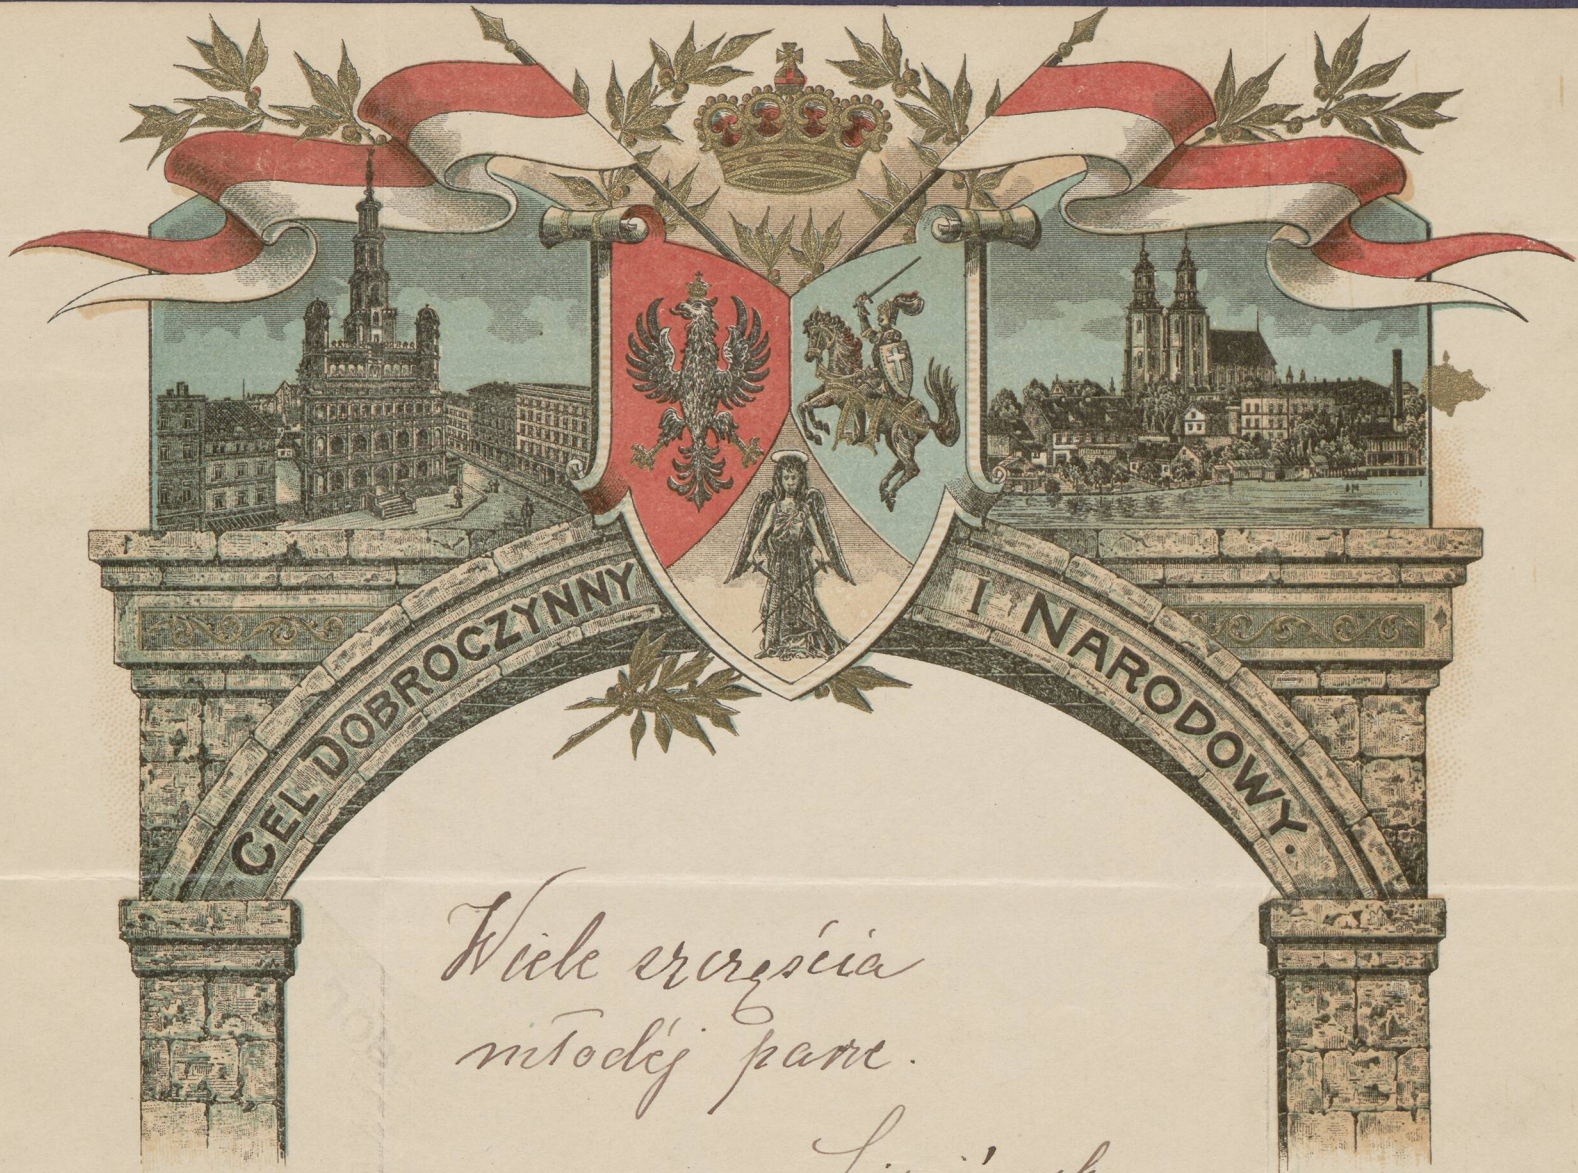 CEL DOBROCZYNNY I NARODOWY.
Wiele szczęścia
młodéj parze.